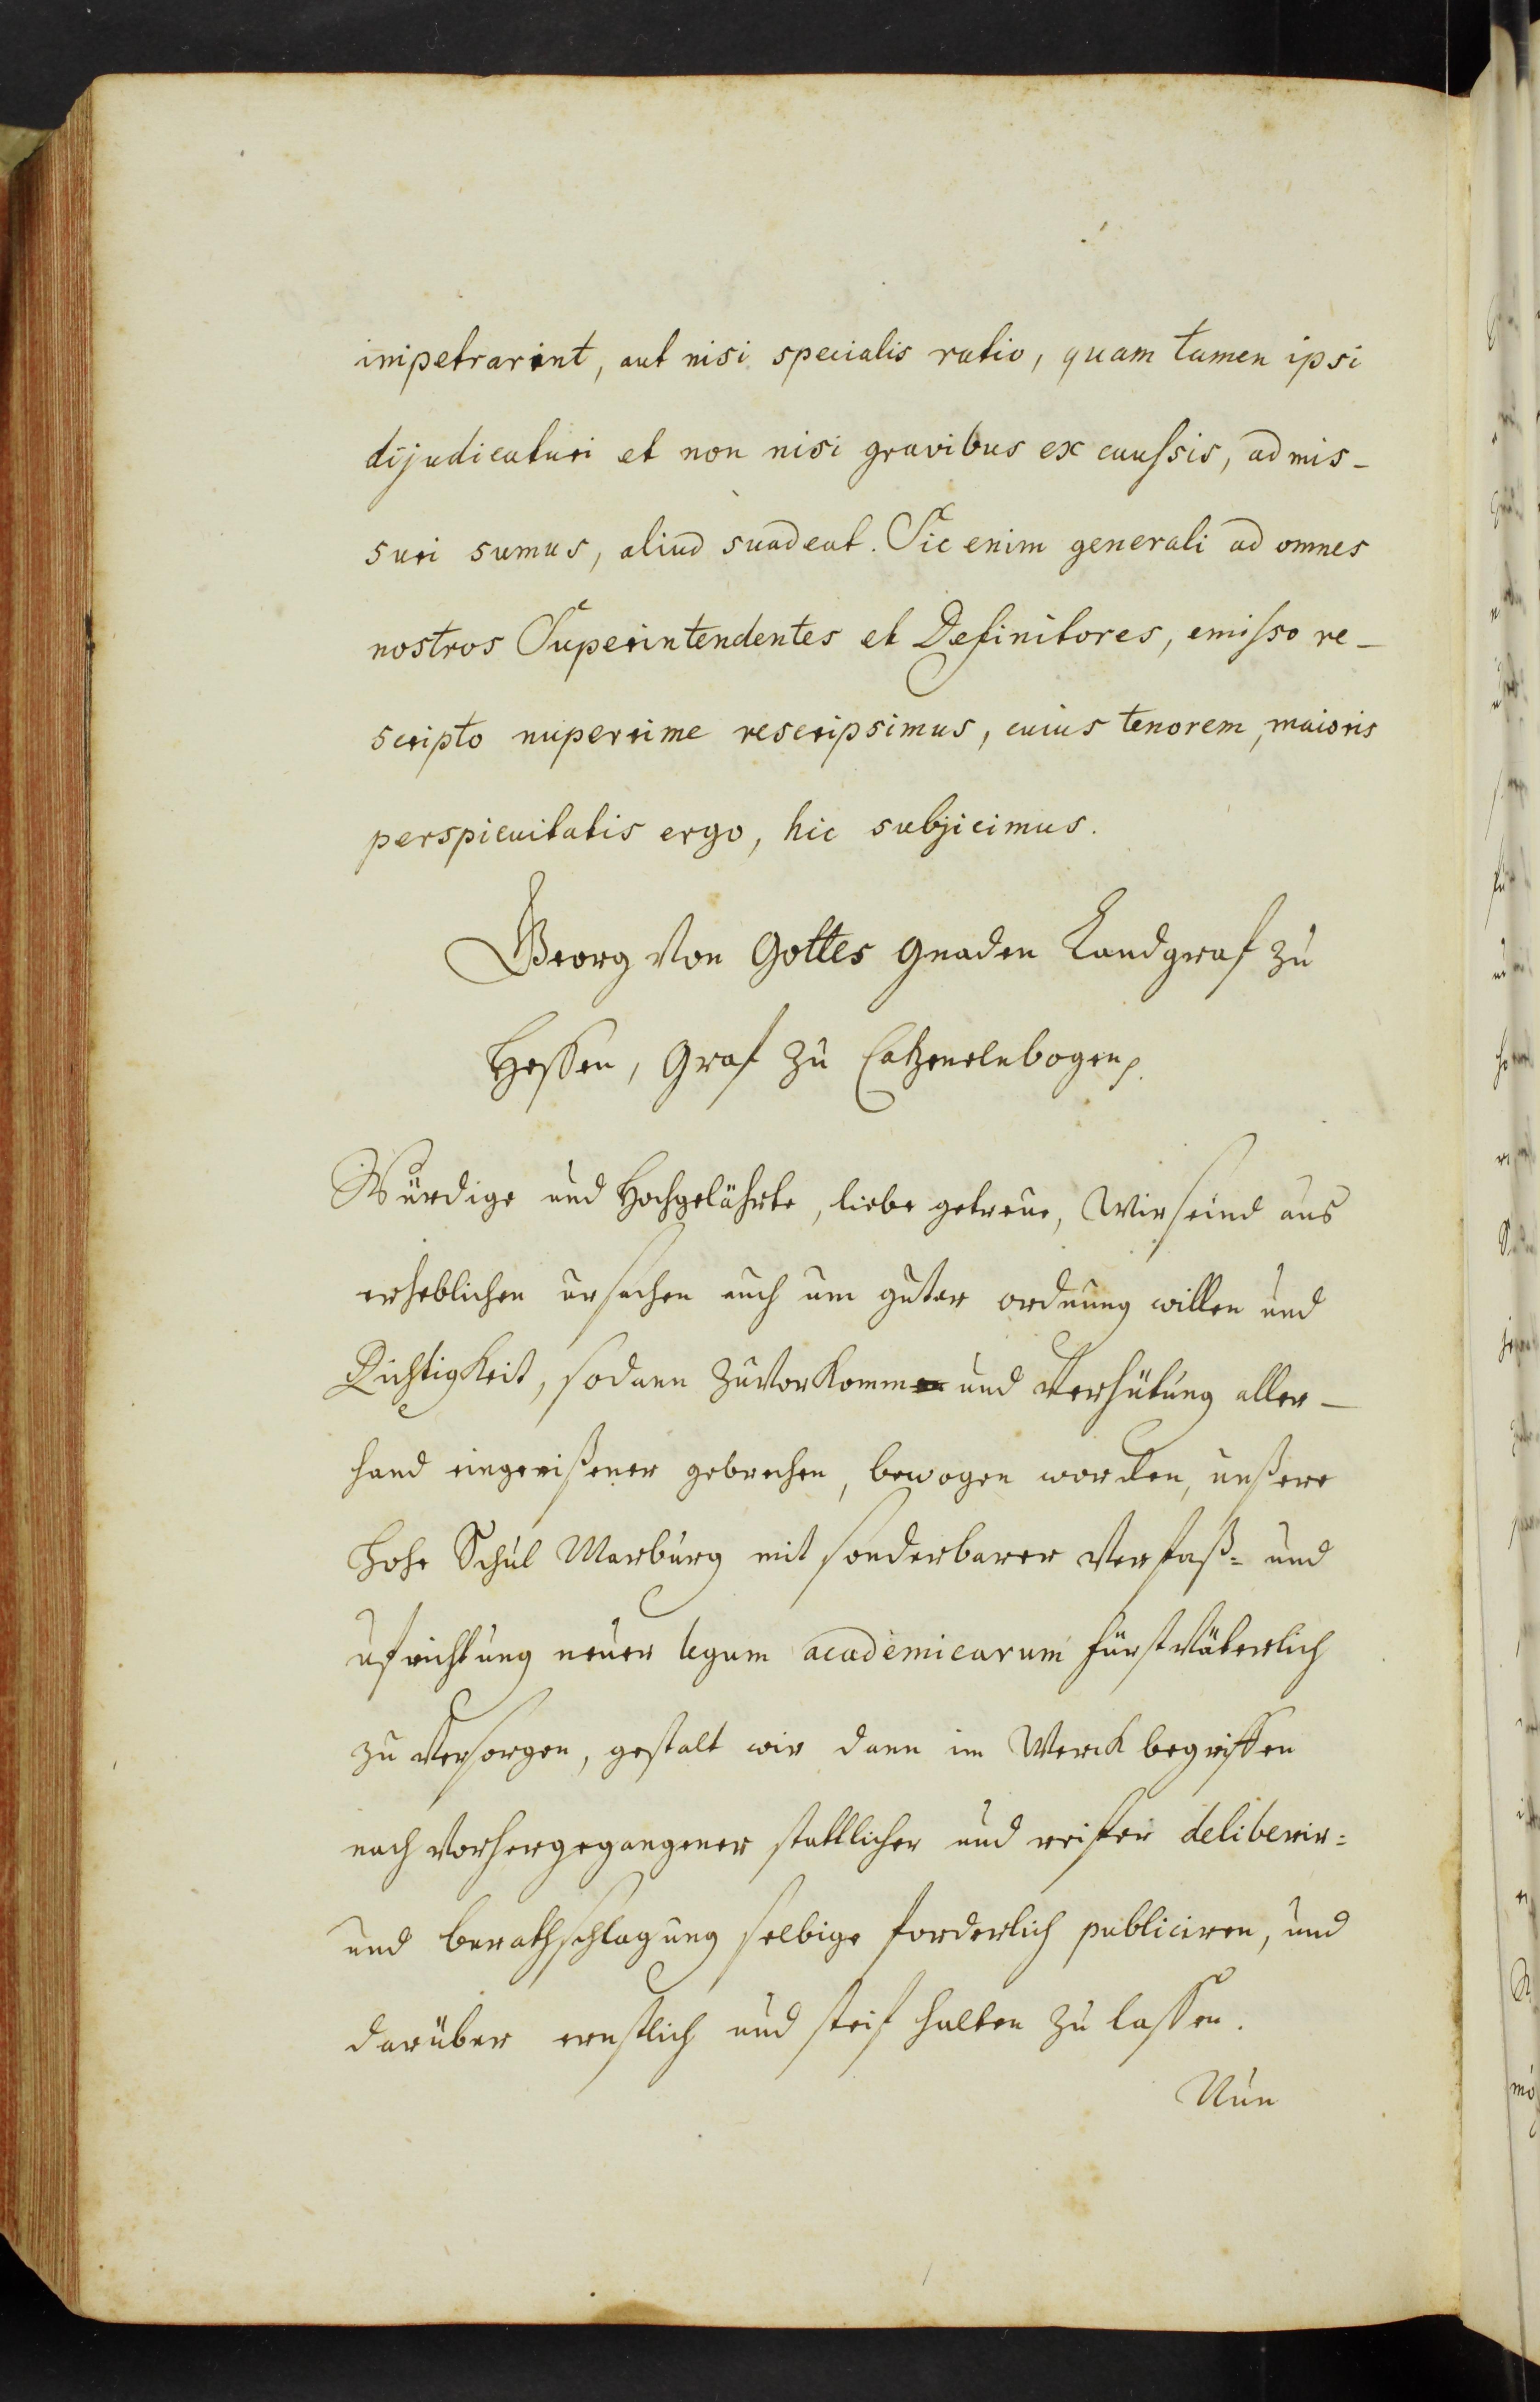 impetrarint, aut nisi specialis ratio, quam tamen ipsi
dijudicaturi et non nisi gravibus ex caussis, admis-
suri sumus, aliud suadeat. Sic enim generali ad omnes
nostros Superintendentes et Definitores, emisso re-
scripto nuperrime rescripsimus, cuius tenorem, maioris
perspicuitatis ergo, hic subjicimus.
Georg von Gottes Gnaden Landgraf zu
Hessen, Graf zu Catzenelnbogen
Würdige und Hochgelährte, liebe getreue, Wir seind aus
erheblichen ursachen auch um guter ordnung willen und
Richtigkeit, sodann zuvorkomm und verhütung aller-
hand eingerißener gebrechen, bewogen worden, unßere
Hohe Schul Marburg mit sonderbarer verfaß= und
ufrichtung neuer legum academicarum fürstväterlich
zu versorgen, gestalt wir dann im Werck begriffen
nach vorhergegangener stattlicher und reifer deliberir=
und berathschlagung selbige forderlich publiciren, und
darüber ernstlich und steif halten zu lassen.
Nun